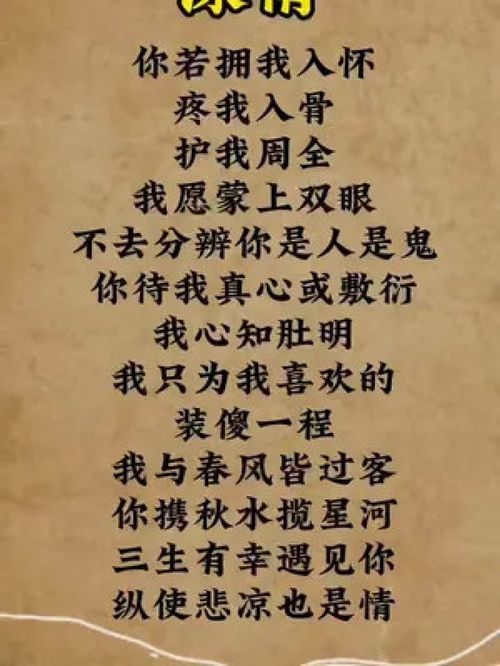 深情
你若拥我入怀
疼我入骨
护我周全
我愿蒙上双眼
不去分辨你是人是鬼
你待我真心或敷衍
我心知肚明
我只为我喜欢的
装傻一程
我与春风皆过客
你携秋水揽星河
三生有幸遇见你
纵使悲凉也是情